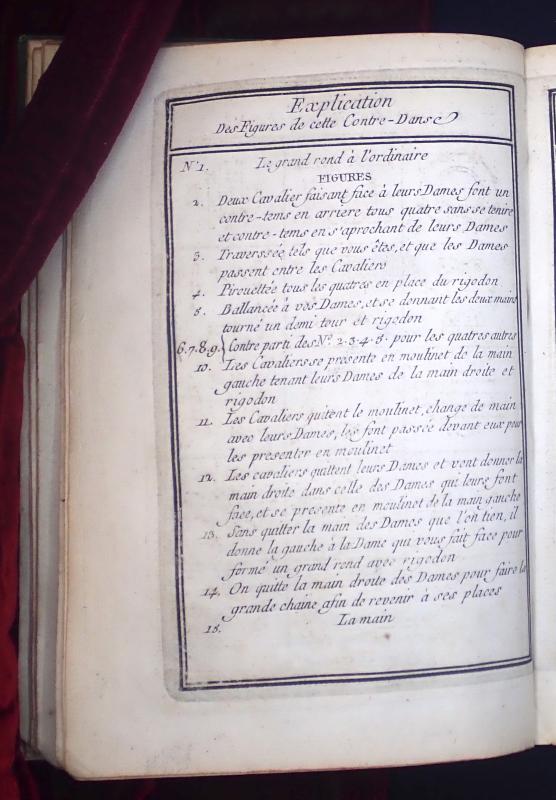 Explication
Des Figures de cette Contre-Danse
N° 1. Le grand rond à l'ordinaire
FIGURES
2. Deux Cavalier faisant face à leurs Dames font un
contre-tems en arriere tous quatre sans se tenire
et contre-tems en s'aprochant de leurs Dames
3. Traverssée, tels que vous êtes, et que les Dames
passent entre les Cavaliers
4. Pirouettée tous les quatres en place du rigodon
5. Ballancée à vos Dames, et se donnant les deux mains
tourné un demi tour et rigodon
6.7.8.9. Contre parti des N.º 2.3.4.5. pour les quatres autres
10. Les Cavaliers se presente en moulinet de la main
gauche tenant leurs Dames de la main droite et
rigodon
11. Les Cavaliers quitent le moulinet, change de main
avec leurs Dames, les font passée devant eux pour
les presenter en moulinet
12. Les cavaliers quittent leurs Dames et vont donner la
main droite dans celle des Dames qui leurs font
face, et se presente en moulinet de la main gauche
13. Sans quitter la main des Dames que l'on tien, il
donne la gauche à la Dame qui vous fait face pour
formé un grand rond avec rigodon
14. On quitte la main droite des Dames pour faire la
grande chaine afin de revenir à ses places
15. La main